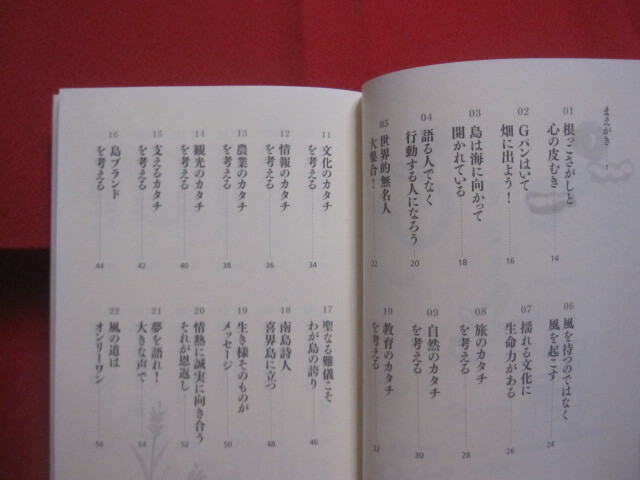 まえがき 1
01 根っこさがしと
心の皮むき 14
02 Gパンはいて
畑に出よう! 16
03 島は海に向かって
開かれている 18
04 語る人でなく
行動する人になろう 20
05 世界的無名人
大集合! 22
06 風を待つのではなく
風を起こす 24
07 揺れる文化に
生命力がある 26
08 旅のカタチ
を考える 28
09 自然のカタチ
を考える 30
10 教育のカタチ
を考える 32
11 文化のカタチ
を考える 34
12 情報のカタチ
を考える 36
13 農業のカタチ
を考える 38
14 観光のカタチ
を考える 40
15 支えるカタチ
を考える 42
16 島ブランド
を考える 44
17 聖なる難儀こそ
わが島の誇り 46
18 南島詩人
喜界島に立つ 48
19 生き様そのものが
メッセージ 50
20 情熱に誠実に向き合う
それが恩返し 52
21 夢を語れ!
大きな声で 54
22 風の道は
オンリーワン 56